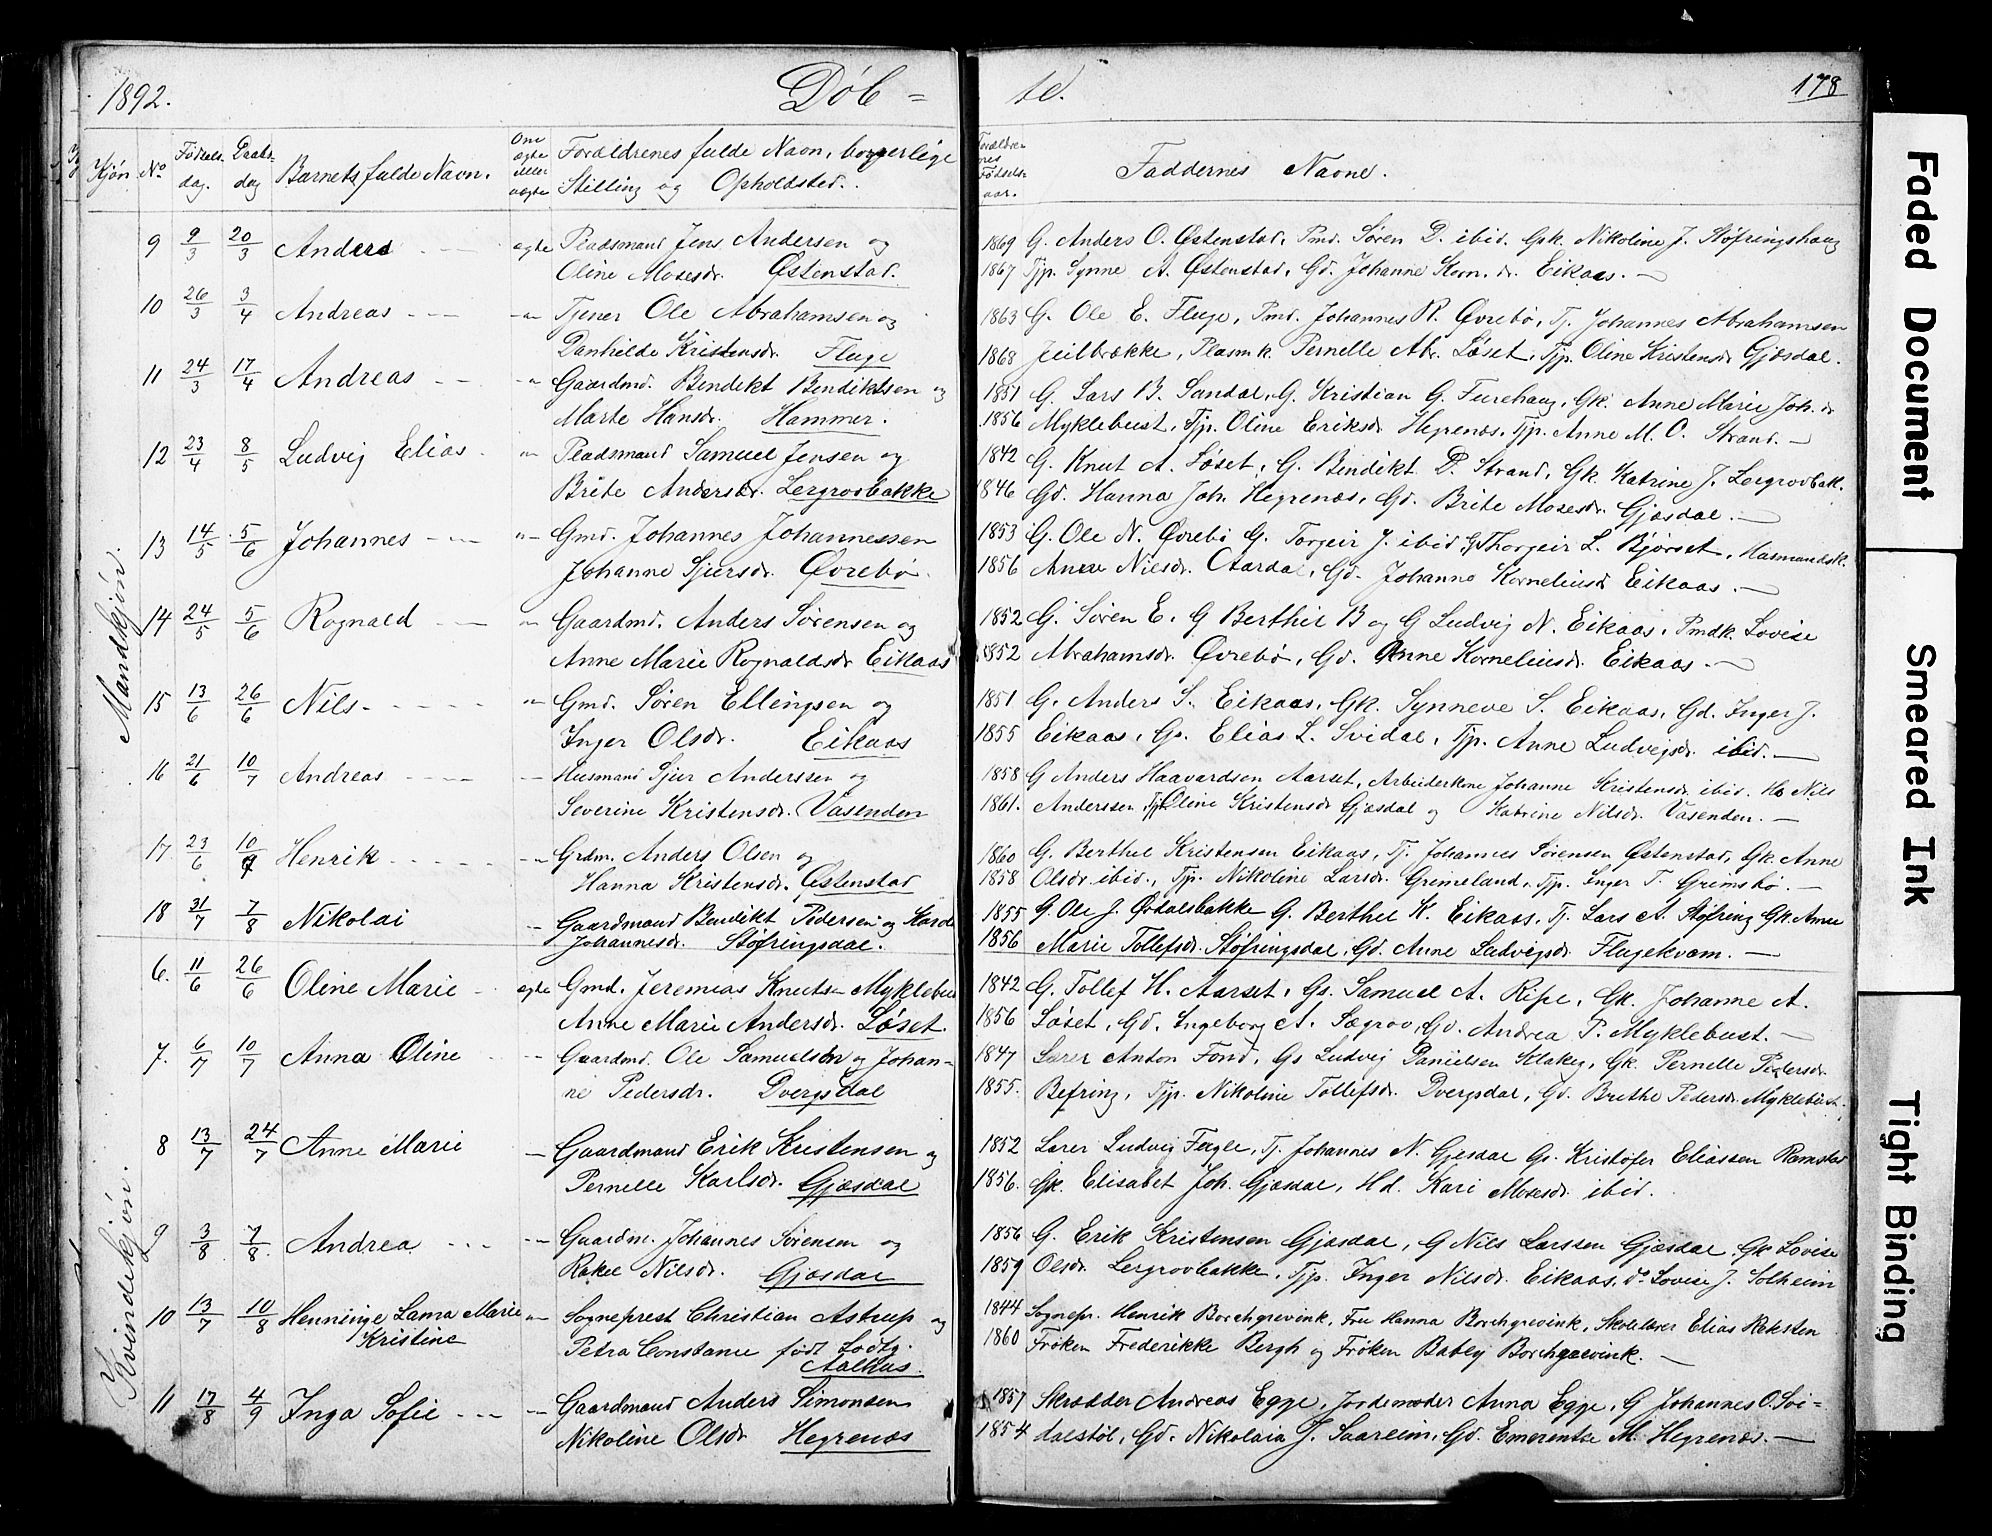 1892.
Døb =
Kjøn. No Fødsels- dag. Daabs- dag Barnets fulde Navn. Om ægte eller uægte Forældrenes fulde Navn, borgerlige
Stilling og Opholdsted.
Mandkjøn.
9 9/3 20/3 Anders ægte Pladsmand Jens Andersen og
Oline Mosesdr. Østenstad.
10 26/3 3/4 Andreas Tjener Ole Abrahamsen og
Danhilde Kristensdr. Fluge
11 24/3 17/4 Andreas Gaardmd. Bendikt Bendiktsen og
Marte Hansdr. Hammer.
12 23/4 8/5 Ludvig Elias Pladsmand Samuel Jensen og
Brite Andersdr. Lergrovbakke
13 14/5 5/6 Johannes Gmd. Johannes Johannessen
Johanne Sjursdr. Øvrebø.
14 24/5 5/6 Rognald Gaardmd. Anders Sørensen og
Anne Marie Rognaldsdr Eikaas
15 13/6 26/6 Nils Gmd. Søren Ellingsen og
Inger Olsdr. Eikaas
16 21/6 10/7 Andreas Husmand Sjur Anderssen og
Severine Kristensdr. Vasenden
17 23/6 10/7 Henrik Grdm. Anders Olsen og
Hanna Kristensdr. Østenstad
18 31/7 7/8 Nikolai Gaardmand Bendikt Pedersen og
Johannesdr. Støfringsdal.
Kvindekjøn.
6. 11/6 26/6 Oline Marie ægte Gmd. Jeremias Knutsen Myklebu
Anne Marie Andersdr. Løset.
7. 6/7 10/7 Anna Oline Gaardmd. Ole Samuelsen og Johan-
ne Pedersdr. Dvergsdal
8 13/7 24/7 Anne Marie Gaardmand Erik Kristensen og
Pernelle Karlsdr. Gjæsdal
9 3/8 7/8 Andrea Gaardm. Johannes Sørensen og
Rakel Nilsdr. Gjæsdal
10 13/7 10/8 Henninge Lama Marie Sogneprest Christian Astrup og
Kristine Petra Constance født Lodtz.
Aalhus.
11 17/8 4/9 Inga Sofie Gaardmand Anders Simonsen
Nikoline Olsdr Hegrenæs
te.
178
Forældre nes Fødsels- aar. Faddernes Navne.
1869 G. Anders O. Østenstad, Pmd. Søren D. ibid. Gk. Nikoline J. Støfringshaug
1867 Tjp. Synne A. Østenstad, Gd. Johanne Korn. dr. Eikaas.
1863 G. Ole E. Fluge, Pmd. Johannes R. Øvrebø, Tj. Johannes Abrahamsen
1868 Jeilbrække, Plasmk. Pernelle Abr. Løset, Tjp. Oline Kristensdr Gjæsdal.
1851 G. Lars B. Sandal, G. Kristian G. Furehaug, Gk. Anne Marie Joh. dr
1856 Myklebust, Tjp. Oline Eriksdr Hegrenæs, Tjp. Anne M. O. Strand.
1842 G. Knut A. Løset, G. Bendikt D. Strand, Gk. Katrine J. Lergrovbak.
1846 Gd. Hanna Joh. Hegrenæs, Gd. Brite Mosesdr. Gjæsdal.
1853 G. Ole N. Øvrebø G. Torgeir J. ibid G. Thorgeir L. Bjørset, Husmandsk.
1856 Anne Nilsdr. Aardal, Gd. Johanne Korneliusd Eikaas.
1852 G. Søren E. G Berthel B og G Ludvig N. Eikaas, Pmdk. Lovise
1852 Abrahamsdr. Øvrebø, Gd. Anne Korneliusdr. Eikaas.
1851 G. Anders S. Eikaas, Gk. Synneve S. Eikaas, Gd. Inger J.
1855 Eikaas, Gs. Elias L. Svidal, Tjp. Anne Ludvigsdr. ibid.
1858 G Anders Haavardsen Aarset, Arbeiderkone Johanne Kristensdr. ibid. Nils
1861. Anderssen, Tjp Oline Kristensdr Gjæsdal og Katrine Nilsdr. Vasenden.
1860 G. Berthel Kristensen Eikaas, Tj. Johannes Sørensen Østenstad, Gk. Anne
1858 Olsdr. ibid., Tjp. Nikoline Larsdr. Grimeland, Tjp. Inger T. Grimsbø.
1855 G. Ole J. Ødalsbakke G. Berthel K. Eikaas, Tj. Lars A. Støfring Gk. Anne
1856 Marie Tollefsdr. Støfringsdal, Gd. Anne Ludvigsdr. Flugekvam.
1842 G. Tollef H. Aarset, Gs. Samuel A. Ripe, Gk. Johanne A.
1856 Løset, Gd. Ingeborg A. Sægrov, Gd. Andrea P. Myklebust.
1847 Lærer Anton Fond, Gs Ludvig Danielsen Klakeg, Gk. Pernelle Pedersdr
1855. Befring, Tjp. Nikoline Tollefsdr. Dvergsdal, Gd. Brethe Pedersdr. Myklebust.
1852 Lærer Ludvig Fugle, Tj. Johannes N. Gjesdal Gs. Kristofer Eliassen Ramstad
1856. Gk. Elisabet Joh. Gjæsdal, Hd. Kari Mosesdr. ibid.
1856 G. Erik Kristensen Gjæsdal, G Nils Larssen Gjæsdal. Gk Lovise
1859 Olsdr. Lergrovbakke, Tjp. Inger Nilsdr. Eikaas, do. Lovise J. Solheim
1844 Sognepr. Henrik Borchgrevink, Fru Hanna Borchgrevink, Skolelærer Elias Reksten
1860 Frøken Frederikke Bergh og Frøken Baby Borchgrevink.
1857 Skrædder Andreas Egge, Jordemoder Anna Egge, G Johannes O. Svi=
1854 dalstøl, Gd. Nikolaia J. Saareim, Gd. Emerentse M. Hegrenæs.
Faded Document
Smeared Ink
Tight Binding